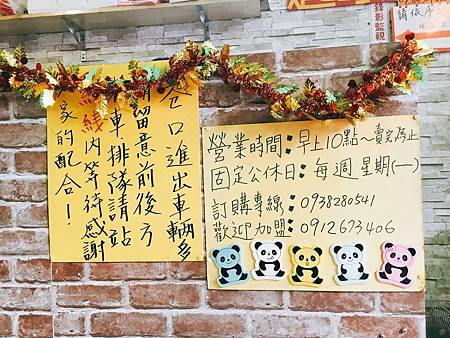 巷口進出車輛多
請留意前後方
來車排隊請站
紅綫內等待感謝
大家的配合！
營業時間：早上10點～賣完為止
固定公休日：每週星期(一)
訂購專線：0938280541
歡迎加盟：0912673406
錄影監視
請依序